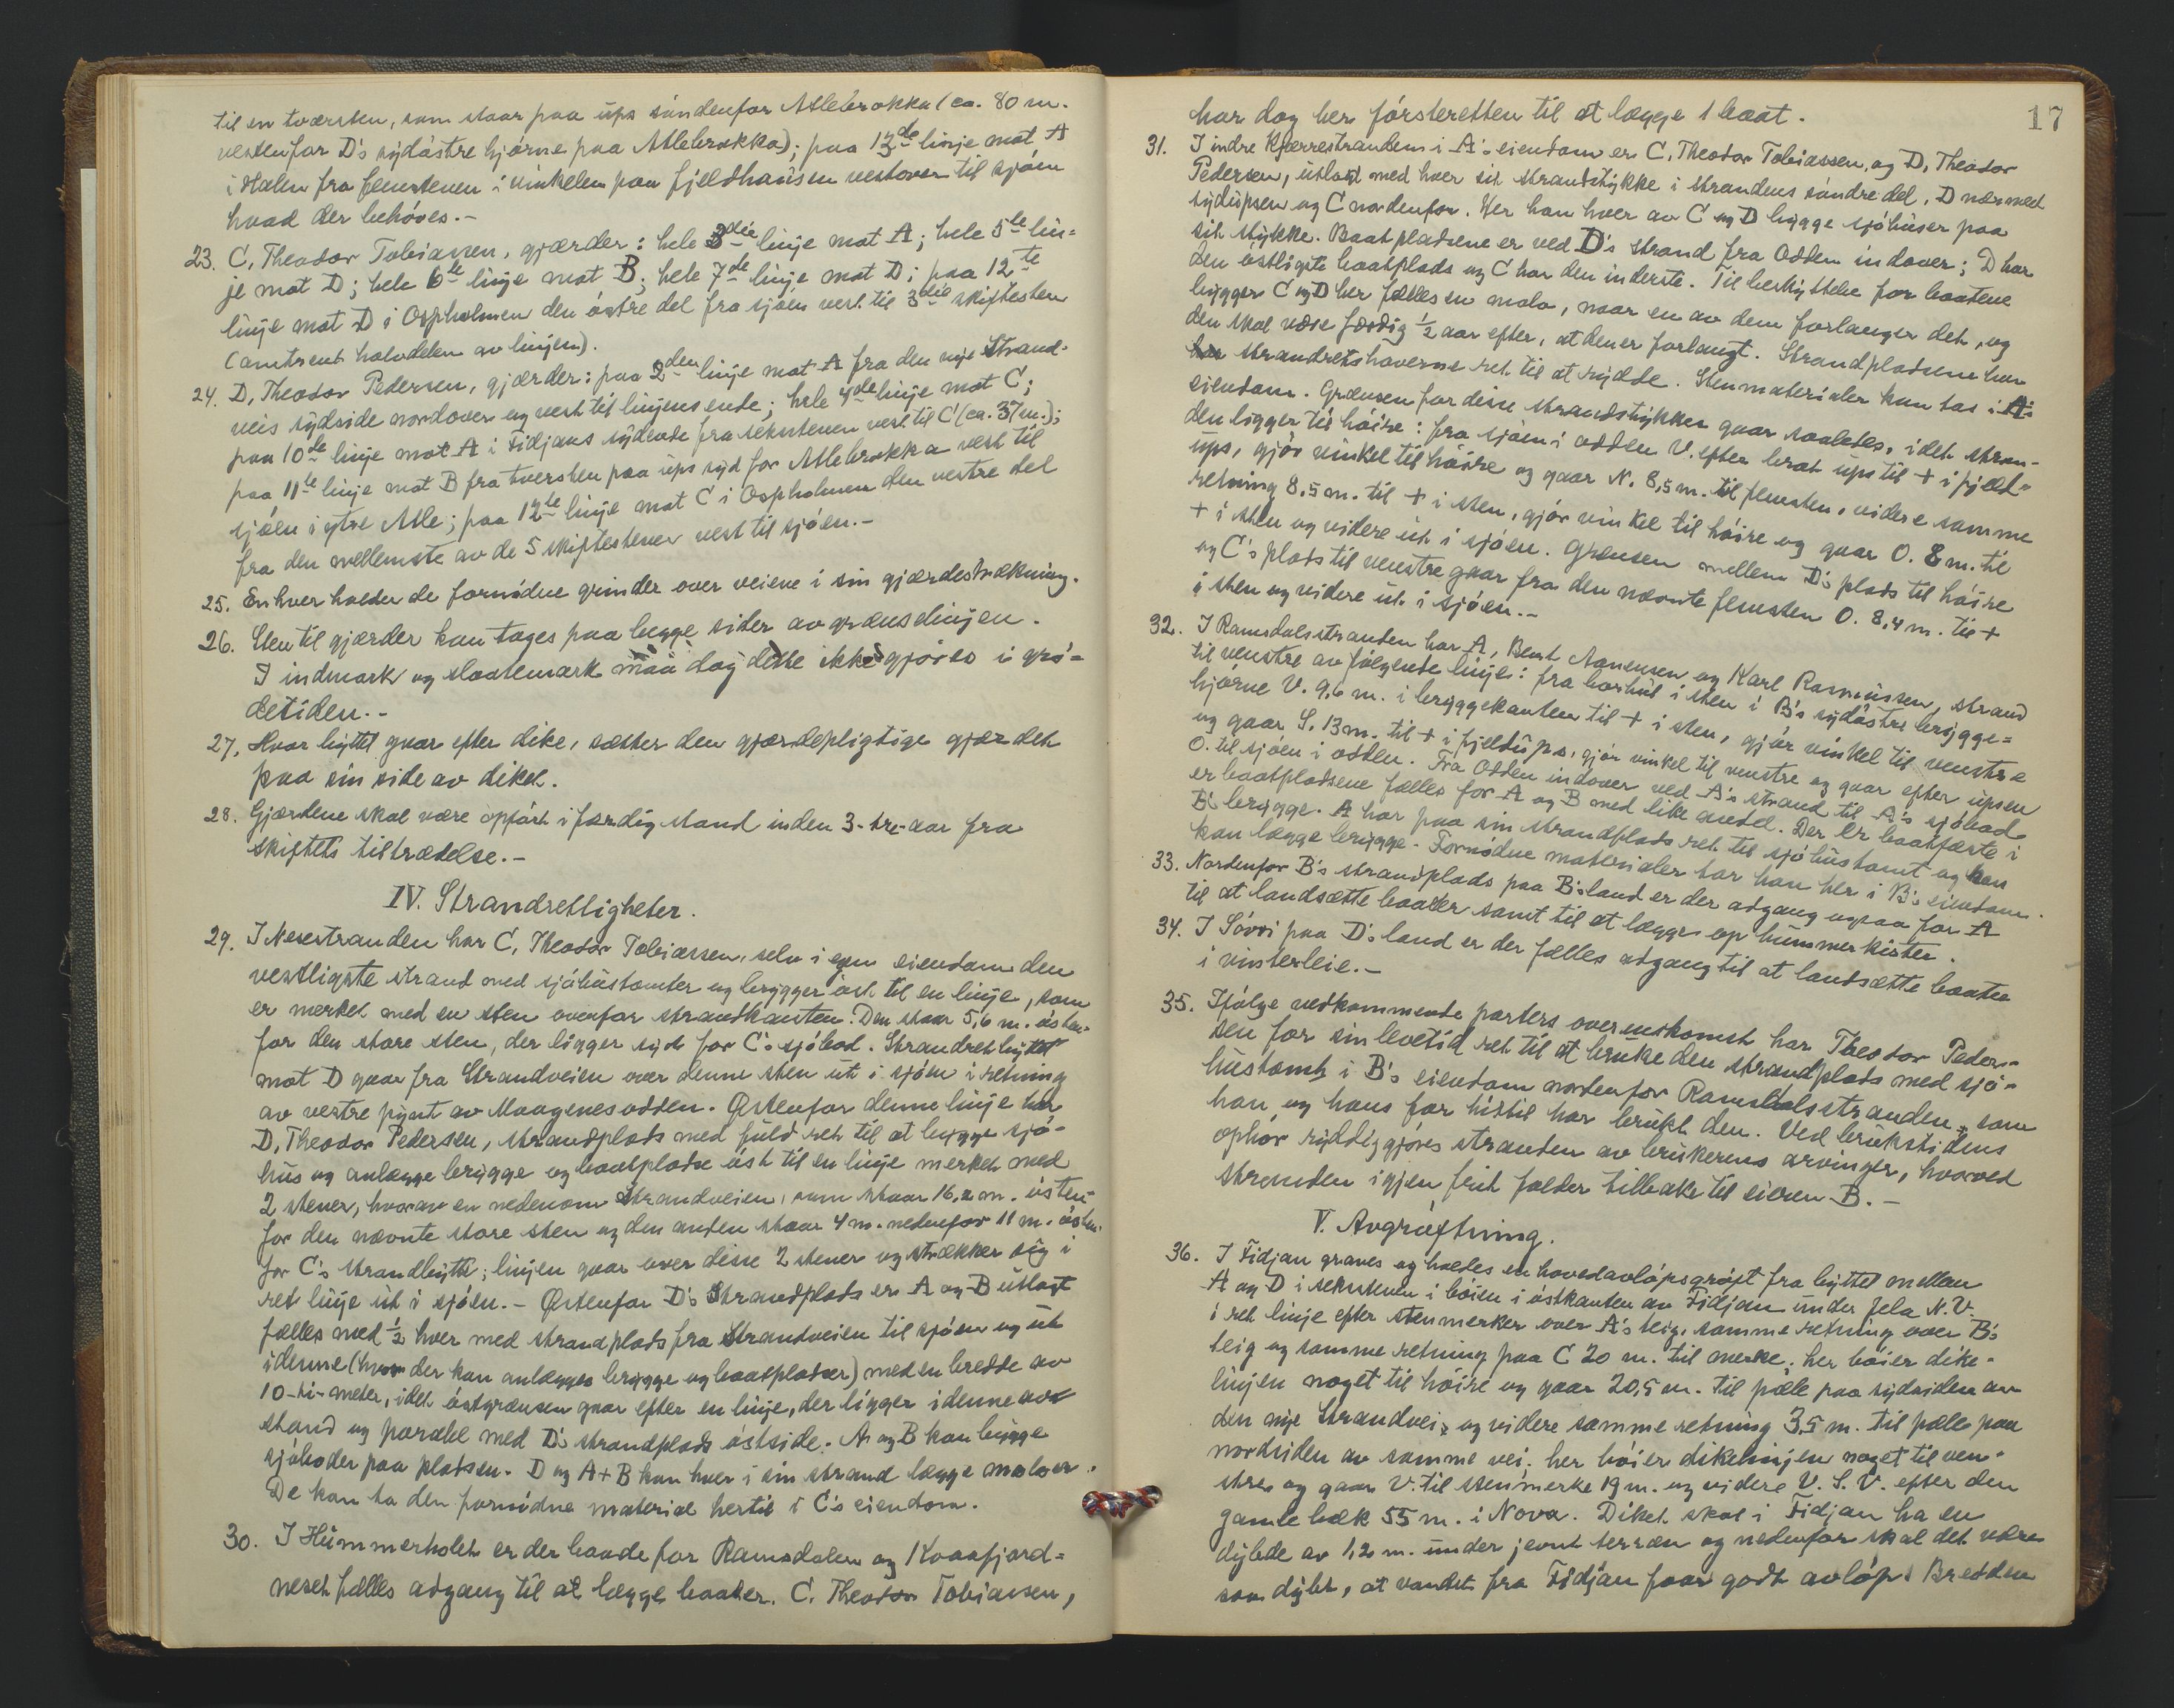 til en tværsten, som staar paa ups søndenfor Atlebrokka (ca. 80 m.
vestenfor D's sydøstre hjørne paa Atlebrokka); paa 13de linje mot A
i Holen fra flenstenen i vinkelen paa fjeldhausen vestover til sjøen
hvad der behøves.-
23. C, Theodor Tobiassen, gjærder: hele 3die linje mot A; hele 5te lin-
je mot D; hele 6te linje mot B; hele 7de linje mot D; paa 12te
linje mot D i Ospholmen den østre del fra sjøen vest til 3die skiftesten
(omtrent halvdelen av linjen).
24. D, Theodor Pedersen, gjærder: paa 2den linje mot A fra den nye Strand-
veis sydside nordover og vest til linjens ende; hele 4de linje mot C;
paa 10de linje mot A i Fidjans sydende fra sekstenen vest til C (ca. 37 m.);
paa 11te linje mot B fra tversten paa ups syd for Atlebrokka vest til
sjøen i ytre Atle; paa 12te linje mot C i Ospholmen den vestre del
fra den mellemste av de 5 skiftestener vest til sjøen.-
25. Enhver holder de fornødne grinder over veiene i sin gjærdestrækning.
26. Sten til gjærder kan tages paa begge sider av grænselinjen.
I indmark og slaattemark maa dog dette ikke gjøres i grø-
detiden.-
27. Hvor byttet gaar efter dike, sætter den gjærdepligtige gjærdet
paa sin side av diket.
28. Gjærdene skal være opført i færdig stand inden 3-tre-aar fra
skiftets tiltrædelse.-
IV. Strandrettigheter.
29. I Nesestranden har C, Theodor Tobiassen, selv i egen eiendom den
vestligste strand med sjøhustomter og brygger øst til en linje, som
er merket med en sten ovenfor strandkanten. Den staar 5,6 m. østen-
for den store sten, der ligger syd for C's sjøbod. Strandretbyttet
mot D gaar fra Strandveien over denne sten ut i sjøen i retning
av vestre pynt av Maagenesodden. Østenfor denne linje har
D, Theodor Pedersen, strandplads med fuld ret til at bygge sjø-
hus og anlægge brygge og baatpladse øst til en linje merket med
2 stener, hvorav en nedenom Strandveien, som staar 16,2 m. østen-
for den nævnte store sten og den anden staar 4 m. nedenfor 11 m. østen-
for C's strandbytte; linjen gaar over disse 2 stener og strækker sig i
ret linje ut i sjøen.- Østenfor D's Strandplads er A og B utlagt
fælles med ½ hver med strandplads fra Strandveien til sjøen og ut
i denne (hvor der kan anlægges brygge og baatplatser) med en bredde av
10-ti-meter, idet østgrænsen gaar efter en linje, der ligger i denne av-
stand og paralel med D's strandplads østside. A og B kan bygge
sjøboder paa platsen. D og A+B kan hver i sin strand lægge moloer.
De kan ta den fornødne material hertil i C's eiendom.
30. I Hummerholet er der baade for Ramsdalen og Kvaafjord-
neset fælles adgang til at lægge baater. C. Theodor Tobiassen,
17
har dog her førsteretten til at lægge 1 baat.
31. I indre Kjærrestranden i A's eiendom er C, Theodor Tobiassen, og D, Theodor
Pedersen, utlagt med hver sit strandstykke i strandens søndre del, D nærmest
sydupsen og C nordenfor. Her kan hver av C og D bygge sjøhuser paa
sit stykke. Baatpladsene er ved D's strand fra Odden indover; D har
den østligste baatplads og C har den inderste. Til beskyttelse for baatene
bygger C og D her fælles en molo, naar en av dem forlanger det, og
den skal være færdig ½ aar efter, at den er forlangt. Strandpladsene har
strandretshaverne ret til at rydde. Stenmaterialer kan tas i A's
eiendom. Grænsen for disse strandstykker gaar saaledes, idet stran-
den ligger til høire: fra sjøen i odden V. efter brat ups til + i fjeld-
ups, gjør vinkel til høire og gaar N. 8,5 m. til flensten, videre samme
retning 8,5 m. til + i sten, gjør vinkel til høire og gaar O. 8 m. til
+ i sten og videre ut i sjøen. Grænsen mellem D's plads til høire
og C's plads til venstre gaar fra den nævnte flensten O. 8,4 m. til +
i sten og videre ut i sjøen.-
32. I Ramsdalsstranden har A, Bent Aanensen og Karl Rasmussen, strand
til venstre av følgende linje: fra borhul i sten i B's sydøstre brygge-
hjørne V. 9,6 m. i bryggekanten til + i sten, gjør vinkel til venstre
og gaar S. 13 m. til + i fjeldups, gjør vinkel til venstre og gaar efter upsen
O. til sjøen i odden. Fra Odden indover ved A's strand til A's sjøbod
er baatpladsene fælles for A og B med like andel. Der er baatfæste i
B's brygge. A har paa sin strandplads ret til sjøhustomt og kan
kan lægge brygge. Fornødne materialer tar han her i B's eiendom.
33. Nordenfor B's strandplads paa B's land er der adgang ogsaa for A
til at landsætte baater samt til at lægge op hummerkister.
34. I Søvri paa D's land er der fælles adgang til at landsætte baater
i vinterleie.-
35. Ifølge vedkommende parters overenskomst har Theodor Peder-
sen for sin levetid ret til at bruke den strandplads med sjø-
hustomt i B's eiendom nordenfor Ramsdalsstranden, som
han og hans far hittil har brukt den. Ved brukstidens
ophør ryddiggjøres stranden av brukerens arvinger, hvorved
stranden igjen frit falder tilbake til eieren B.-
V. Avgrøftning.
36. I Fidjan graves og holdes en hovedavløpsgrøft fra byttet mellem
A og D i sekstenen i bøien i østkanten av Fidjan under Jela N.V.
i ret linje efter stenmerker over A's teig, samme retning over B's
teig og samme retning paa C 20 m. til merke; her bøier dike-
linjen noget til høire og gaar 20,5 m. til pæle paa sydsiden av
den nye Strandvei, og videre samme retning 3,5 m. til pæle paa
nordsiden av samme vei; her bøier dikelinjen noget til ven-
stre og gaar V. til stenmerke 19 m. og videre V. S. V. efter den
gamle bæk 55 m. i Nova. Diket skal i Fidjan ha en
dybde av 1,20 m. under jevnt terræn og nedenfor skal det være
saa dybt, at vandet fra Fidjan faar godt avløp. Bredden